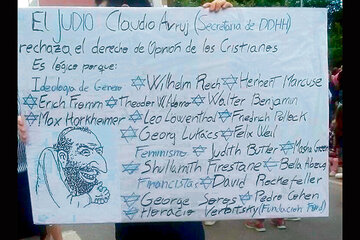 El JUDIO Claudio Avruj (Secretaria de DDHH)
rechaza el derecho de Opinión de los Cristianos
Es lógico porque:
Ideologo de Genero ✡Wilhelm Rech ✡Herbert Marcuse
✡Erich Fromm ✡Theodor W. Adorno ✡Walter Benjamin
✡Max Horkheimer ✡Leo Lowenthal ✡Friedrich Pollock
✡Georg Lukács ✡Felix Weil
Feminismo ✡Judith Butler ✡Masha
✡Shulamith Firestone ✡Bela Abzug
Financistas ✡David Rockefeller
✡George Soros ✡Pedro Cohen
✡Horacio Verbitsky (Fundacion Ford)